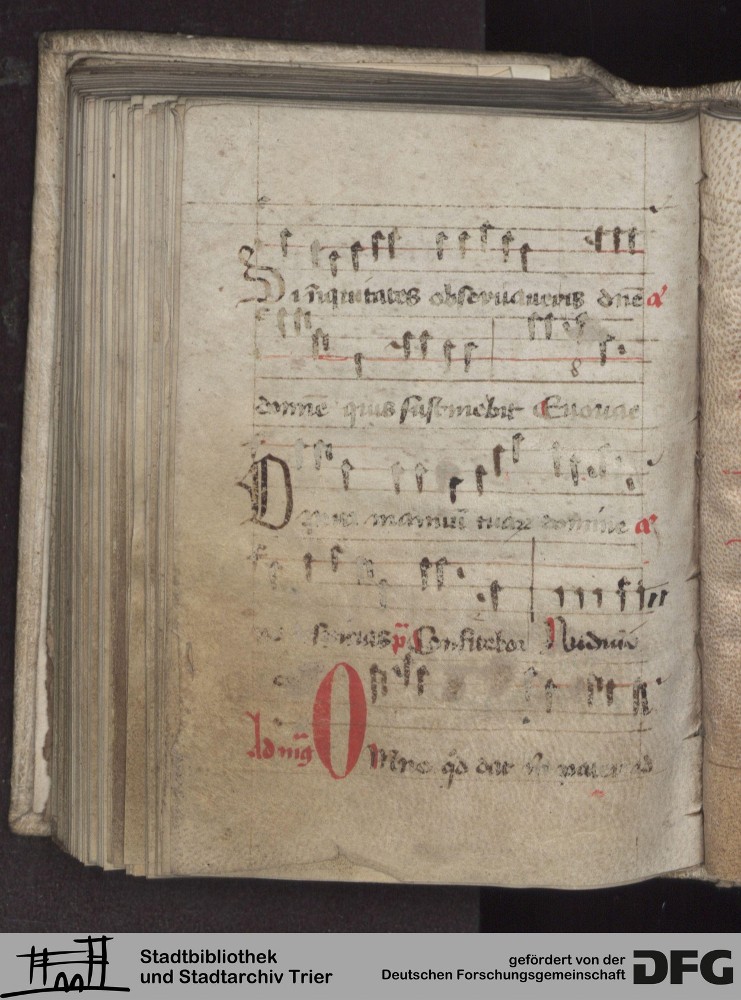 Si iniquitates obseruaueris dne a
domine quis sustinebit Euouae
De manuum tuarum domine a
Confitebor Audiui
Ad mag Omne qd dat m pater ad
Stadtbibliothek
und Stadtarchiv Trier
gefördert von der
Deutschen Forschungsgemeinschaft
DFG